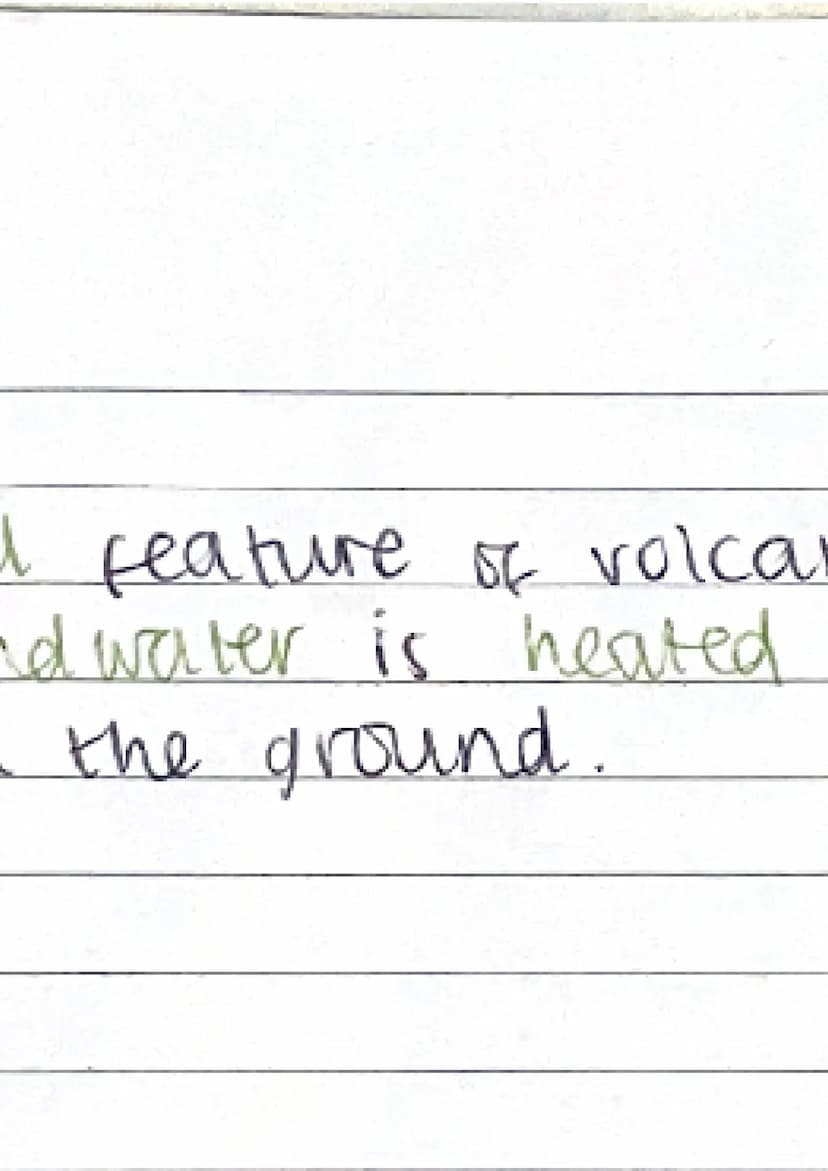 feature of volca
ndwater is heated
the ground.